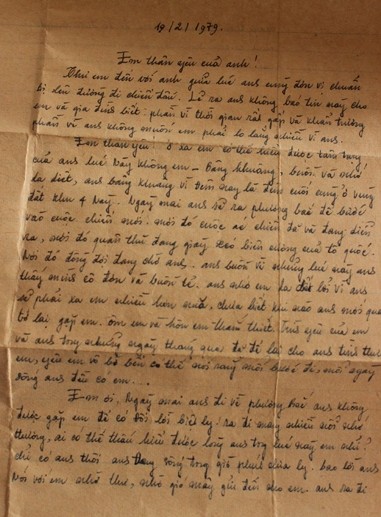 19/2/1979.
Em thân yêu của anh!
Thư em đến với anh giữa lúc anh cùng đơn vị chuẩn
bị lên đường đi chiến đấu. Lẽ ra anh không báo tin này cho
em và gia đình biết. phần vì thời gian rất gấp và khẩn trương
phần vì anh không muốn em phải lo lắng nhiều vì anh.
Em thân yêu! Ở xa em có thể hiểu được tâm trạng
của anh lúc này không em. Bâng khuâng, buồn và nhớ
da diết, anh bâng khuâng vì đêm nay là đêm cuối cùng ở vùng
đất khu 4 này. Ngày mai anh sẽ ra phương bắc để bước
vào cuộc chiến mới. nơi đó cuộc chiến đã và đang diễn
ra, nơi đó quân thù đang giày xéo biên cương của tổ quốc.
Nơi đó đồng đội đang chờ anh. anh buồn vì những lúc này anh
thấy mình cô đơn và buồn tẻ. anh nhớ em da diết bởi vì anh
sẽ phải xa em nhiều hơn nữa, chưa biết khi nào anh mới quay
trở lại gặp em. ôm em và hôn em tình yêu của em
và anh trong những ngày tháng qua đã để lại cho anh
em, yêu em vì thế mỗi bước đi, mỗi ngày
sống anh đều có em...
Em ơi, Ngày mai anh đi về phương Bắc anh không
được gặp em để có đôi lời biệt ly. ra đi mang nhiều nỗi nhớ
thương, ai có thể thấu hiểu được lòng anh trong lúc này em nhỉ?
chỉ có anh thôi anh đang sống trong giờ phút chia ly. bao lời anh
Nói với em nhờ thư, nhờ gió mây gửi đến cho em. anh ra đi